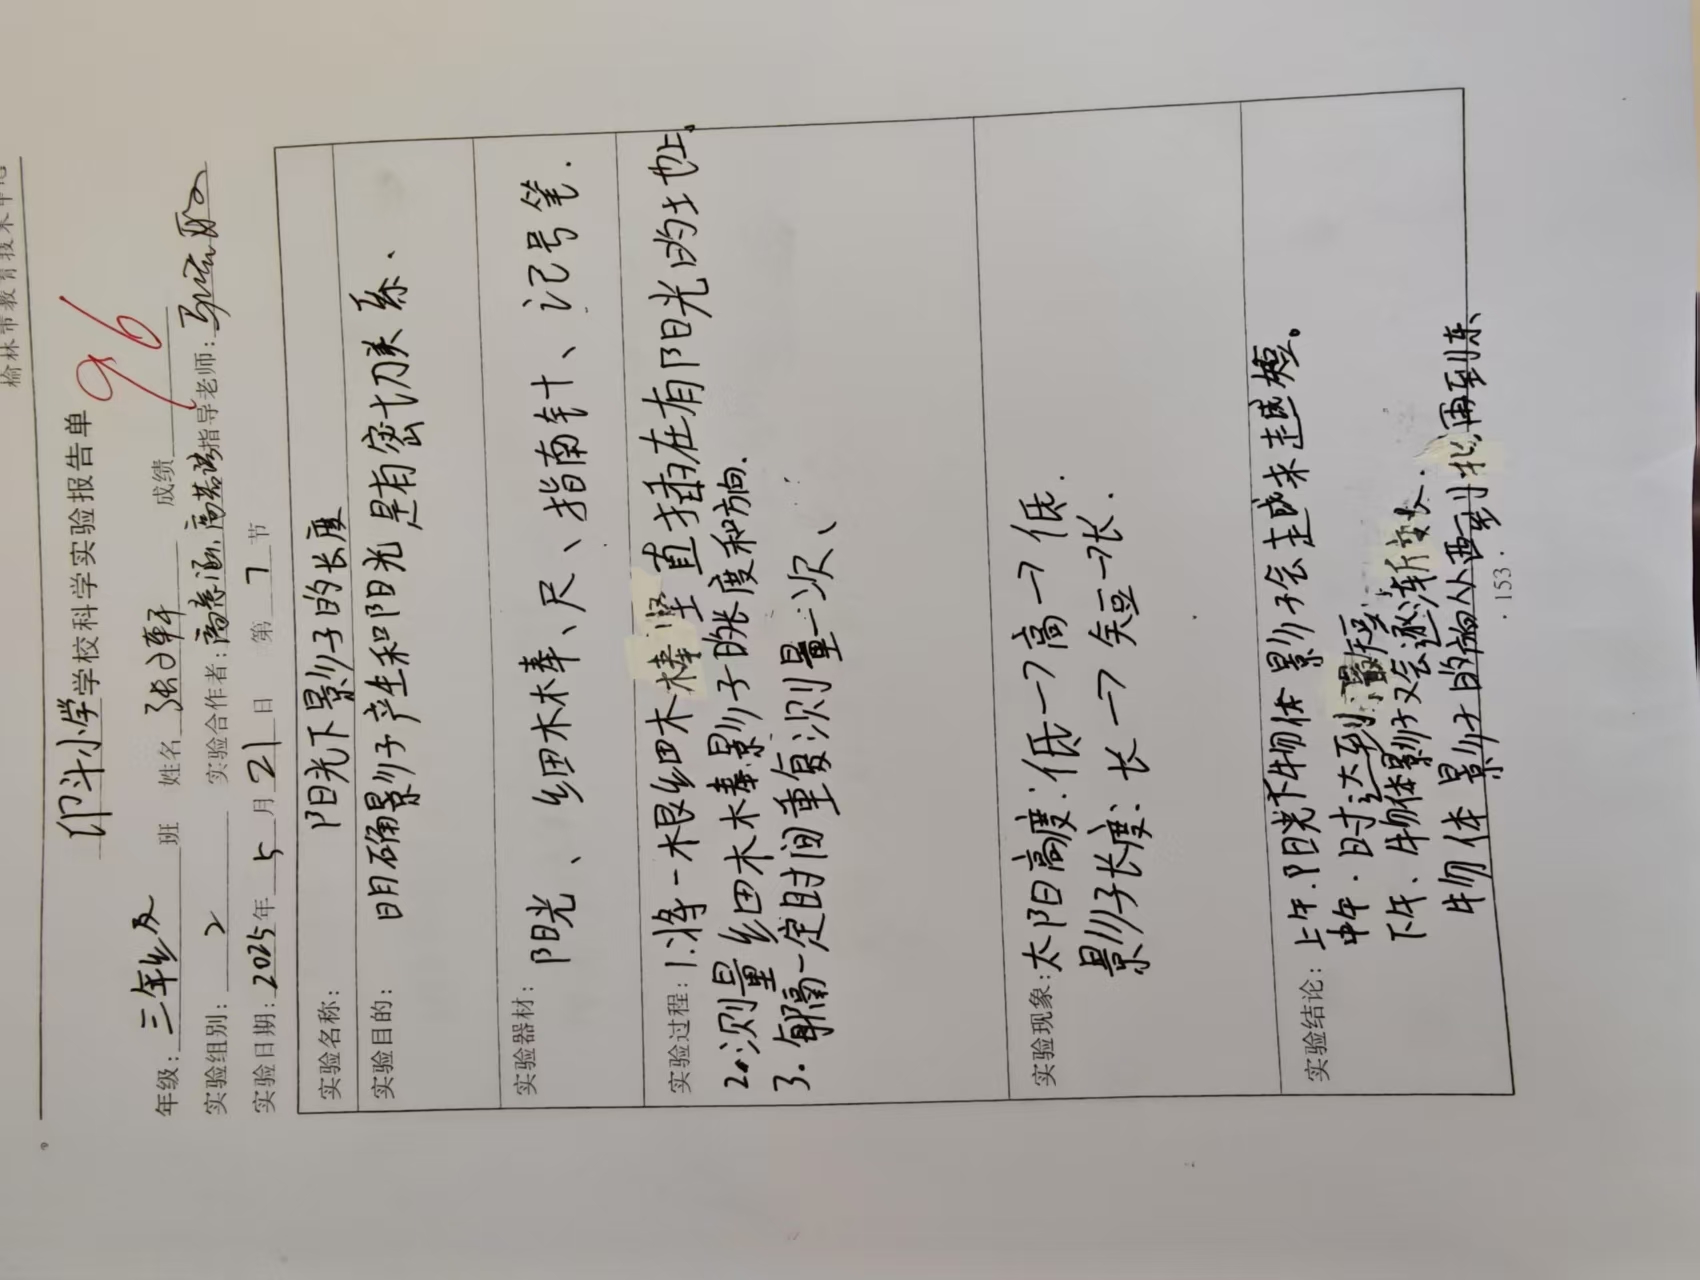 印斗小学学校科学实验报告单
96
年级:三年级 班 姓名 张文轩 成绩
实验组别: 2 实验合作者: 指导老师:
实验日期:2025年5月21日 第7节
实验名称: 阳光下影子的长度
实验目的: 明确影子产生和阳光是有密切关系.
实验器材: 阳光、细木棒、尺、指南针、记号笔.
实验过程:1.将一根细木棒竖直插在有阳光的土地上。
2.测量细木棒影子的长度和方向.
3.每隔一定时间重复测量一次、
实验现象:太阳高度:低→高→低.
影子长度:长→短→长.
实验结论:上午.阳光下物体影子会越来越短。
中午.时达到最短
下午、物体影子又会逐渐变长.
物体影子的 从西到北再到东
·153·